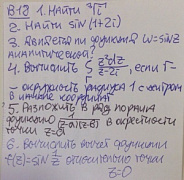 В.18 1. Найти
2. Найти sin(1+2i)
3. Является ли функция W=sin z̄
аналитической?
4. Вычислить ∫ если Γ-
- окружность радиуса 1 с центром
в начале координат
5. Разложить в ряд Лорана
функцию в окрестности
точки z=
6. Вычислить вычет функции
f(z)= относительно точки
z=0